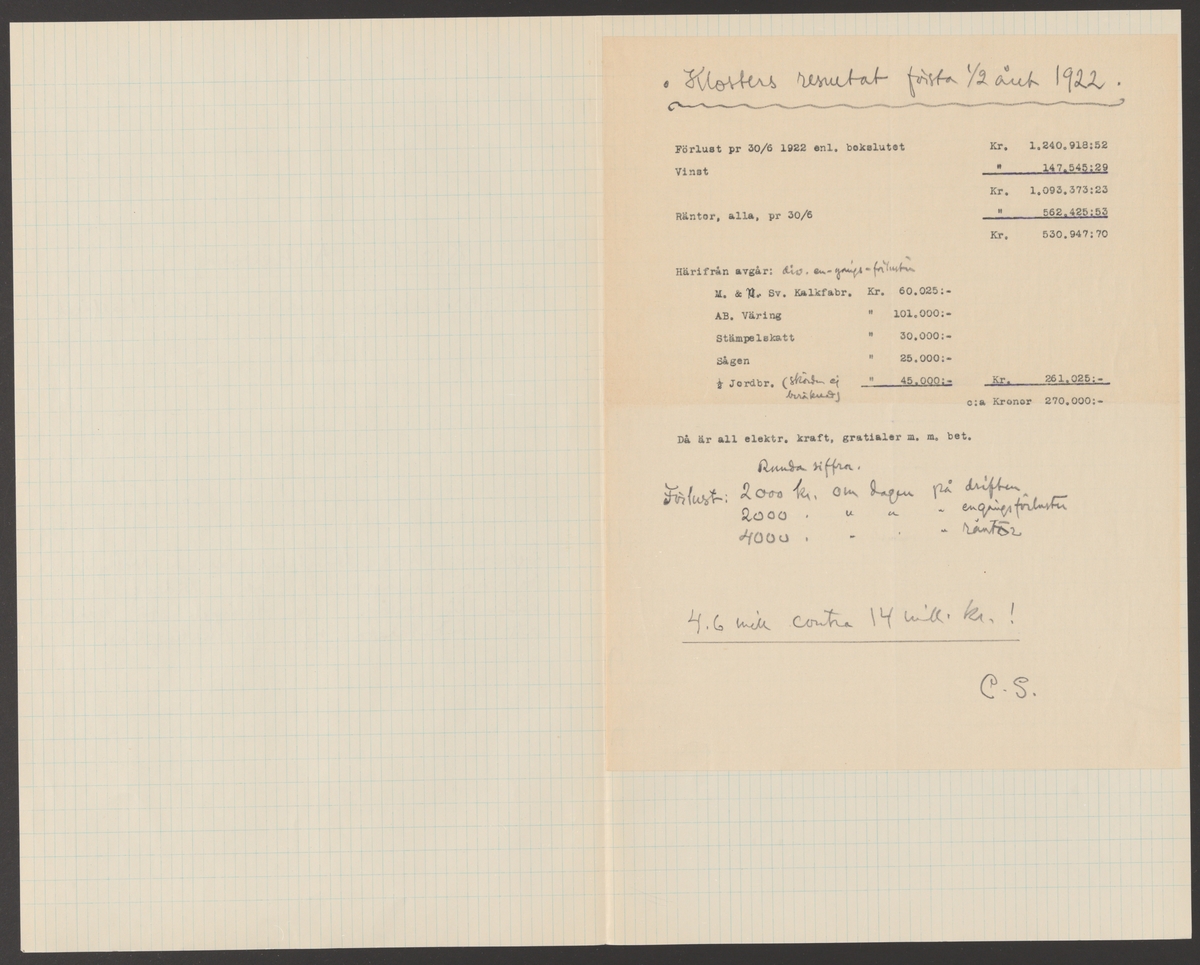 Klosters resultat första 1/2 året 1922.
Förlust pr 30/6 1922 enl. bokslutet Kr. 1.240.918:52
Vinst " 147.545:29
Kr. 1.093.373:23
Räntor, alla, pr 30/6 " 562.425:53
Kr. 530.947:70
Härifrån avgår: div. en-gångs-förluster
M. & N. Sv. Kalkfabr. Kr. 60.025:-
AB. Väring " 101.000:-
Stämpelskatt " 30.000:-
Sågen " 25.000:-
½ Jordbr. (skörden ej " 45.000:- Kr. 261.025:-
beräknad)
c:a Kronor 270.000:-
Då är all elektr. kraft, gratialer m. m. bet.
Runda siffror.
Förlust: 2000 kr. om dagen på driften
2000 . " " " engångsförluster
4000 . " . " räntor
4.6 mill contra 14 mill. kr.!
C.S.